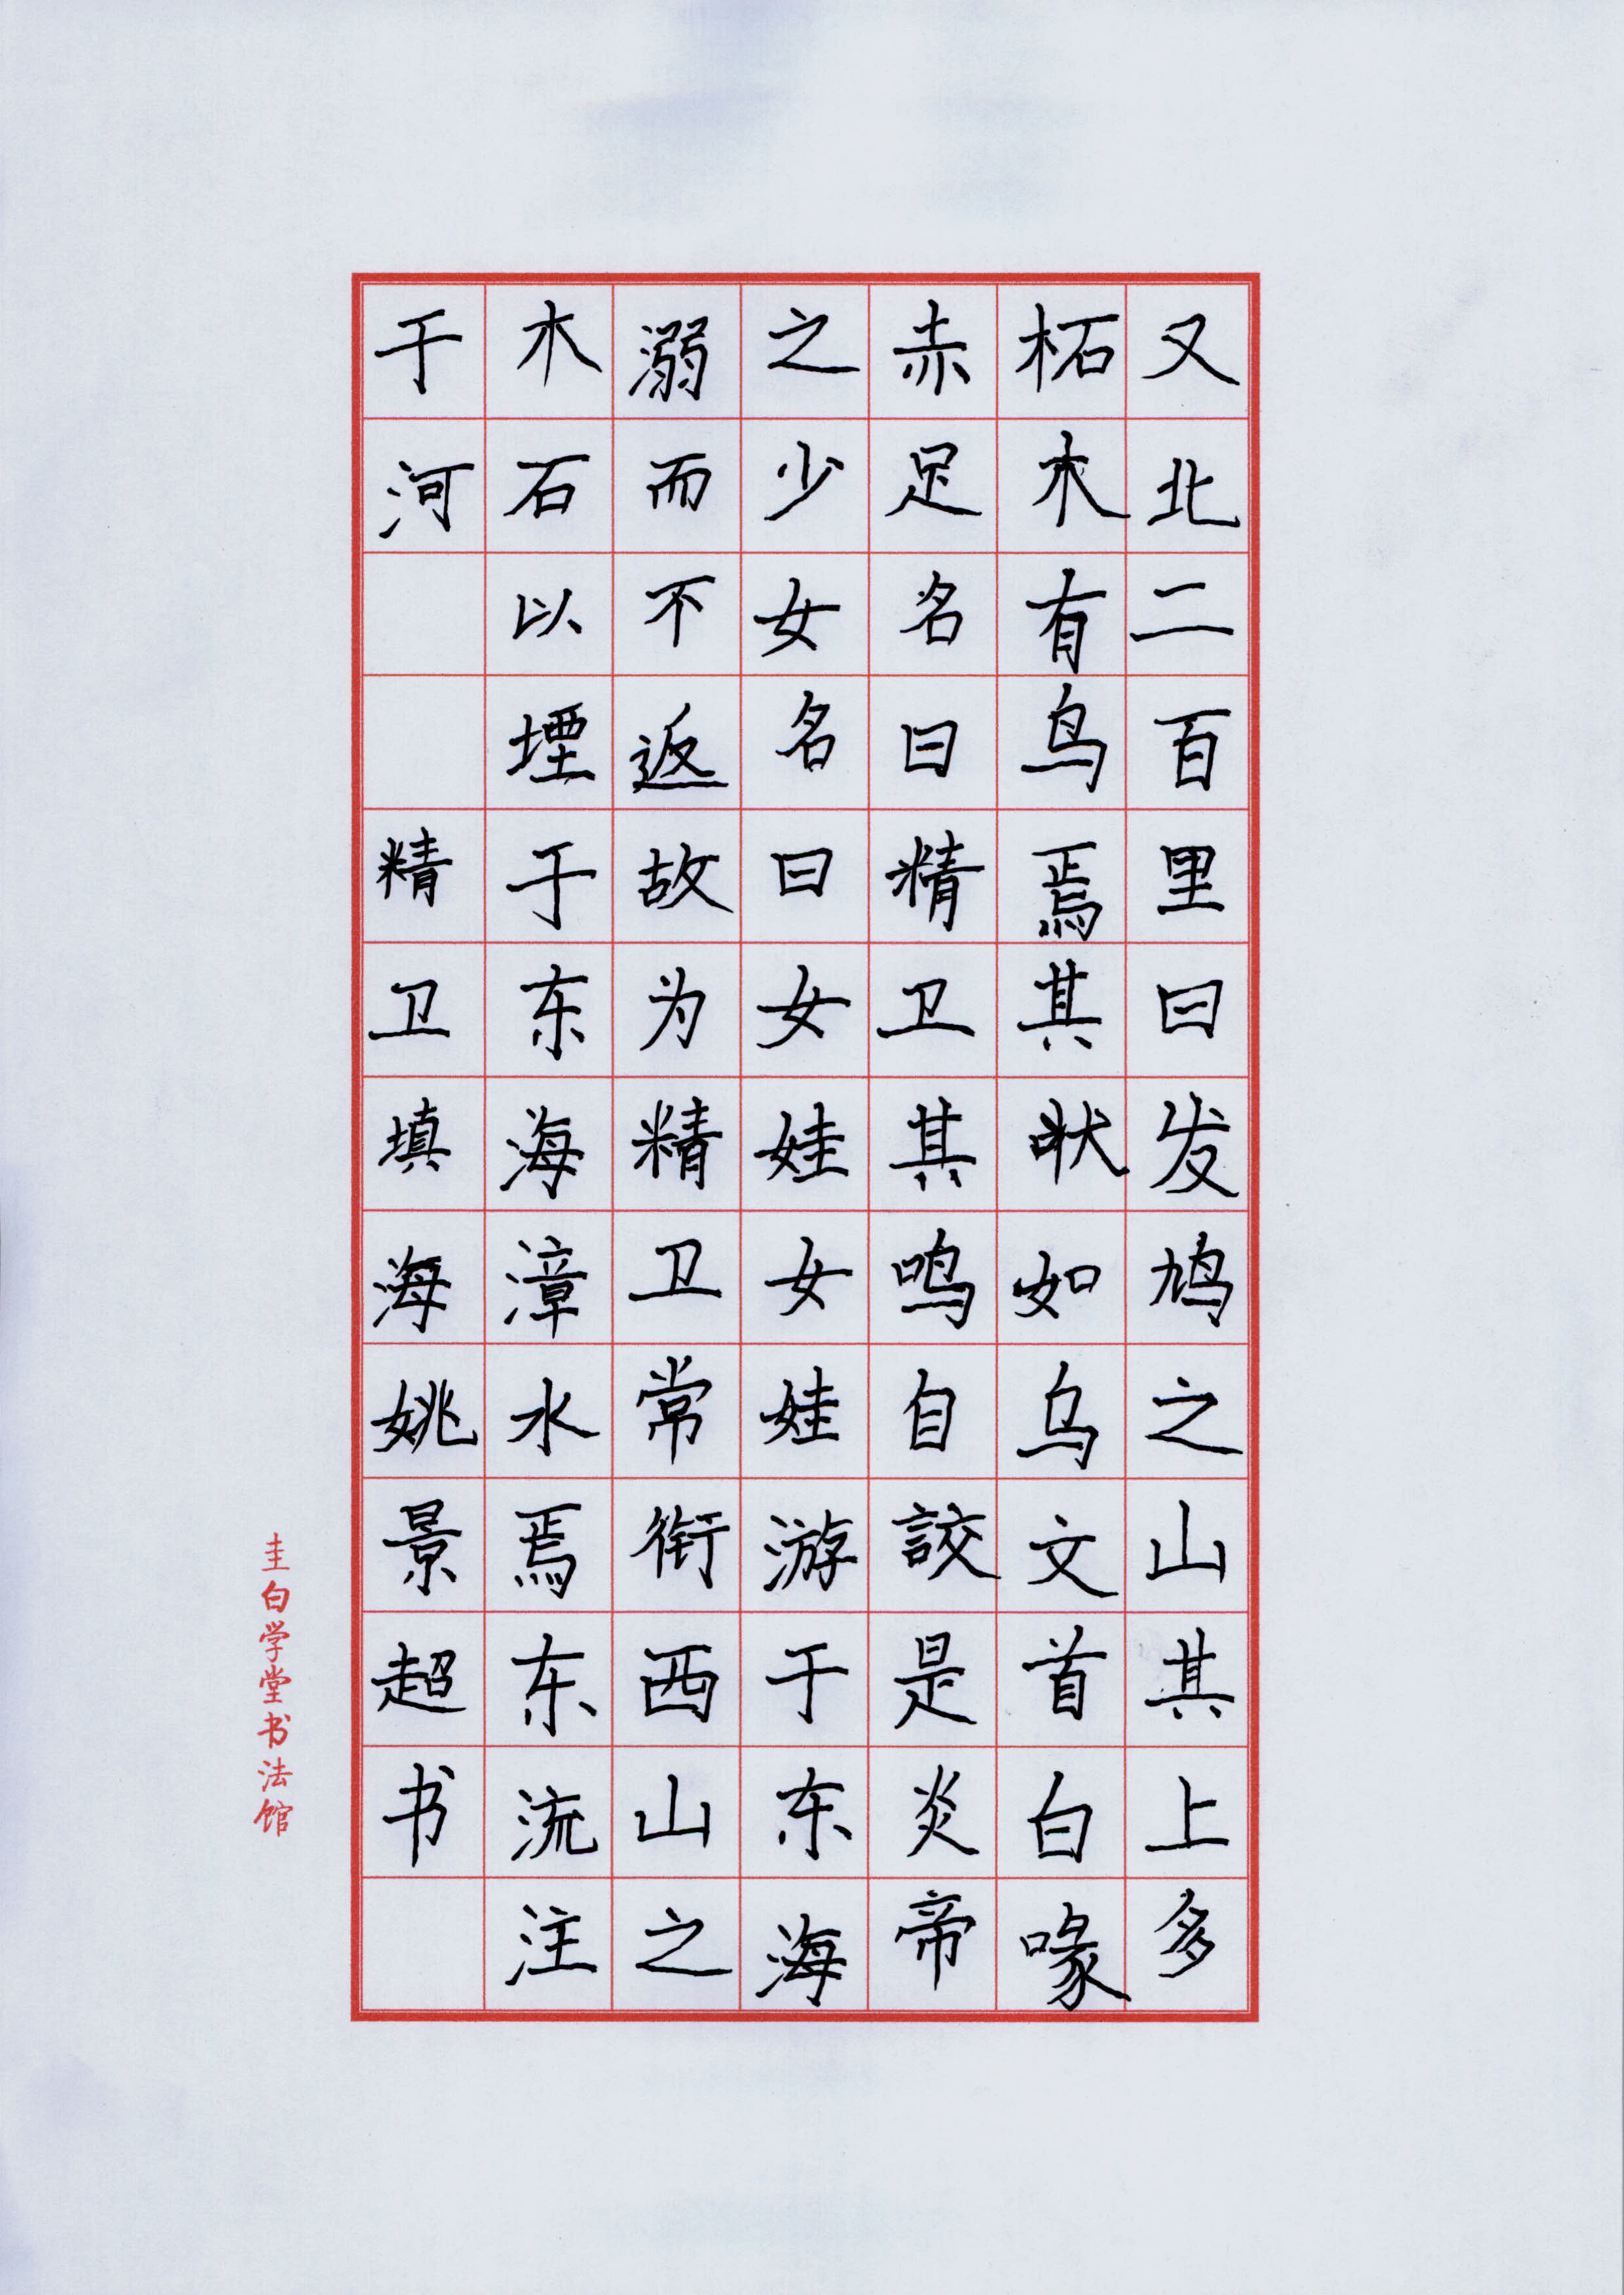 又北二百里曰发鸠之山其上多
柘木有鸟焉其状如乌文首白喙
赤足名曰精卫其鸣自詨是炎帝
之少女名曰女娃女娃游于东海
溺而不返故为精卫常衔西山之
木石以堙于东海漳水焉东流注
于河 精卫填海姚景超书
圭白学堂书法馆